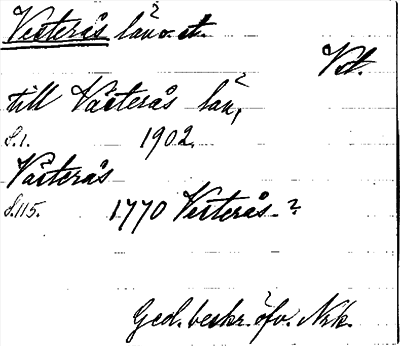 Vesterås län o. st.
Vst.
till Västerås län,
S. 1. 1902.
Västerås
S. 115. 1770 Vesterås ?
Geol. beskr. öfv. Nrk.